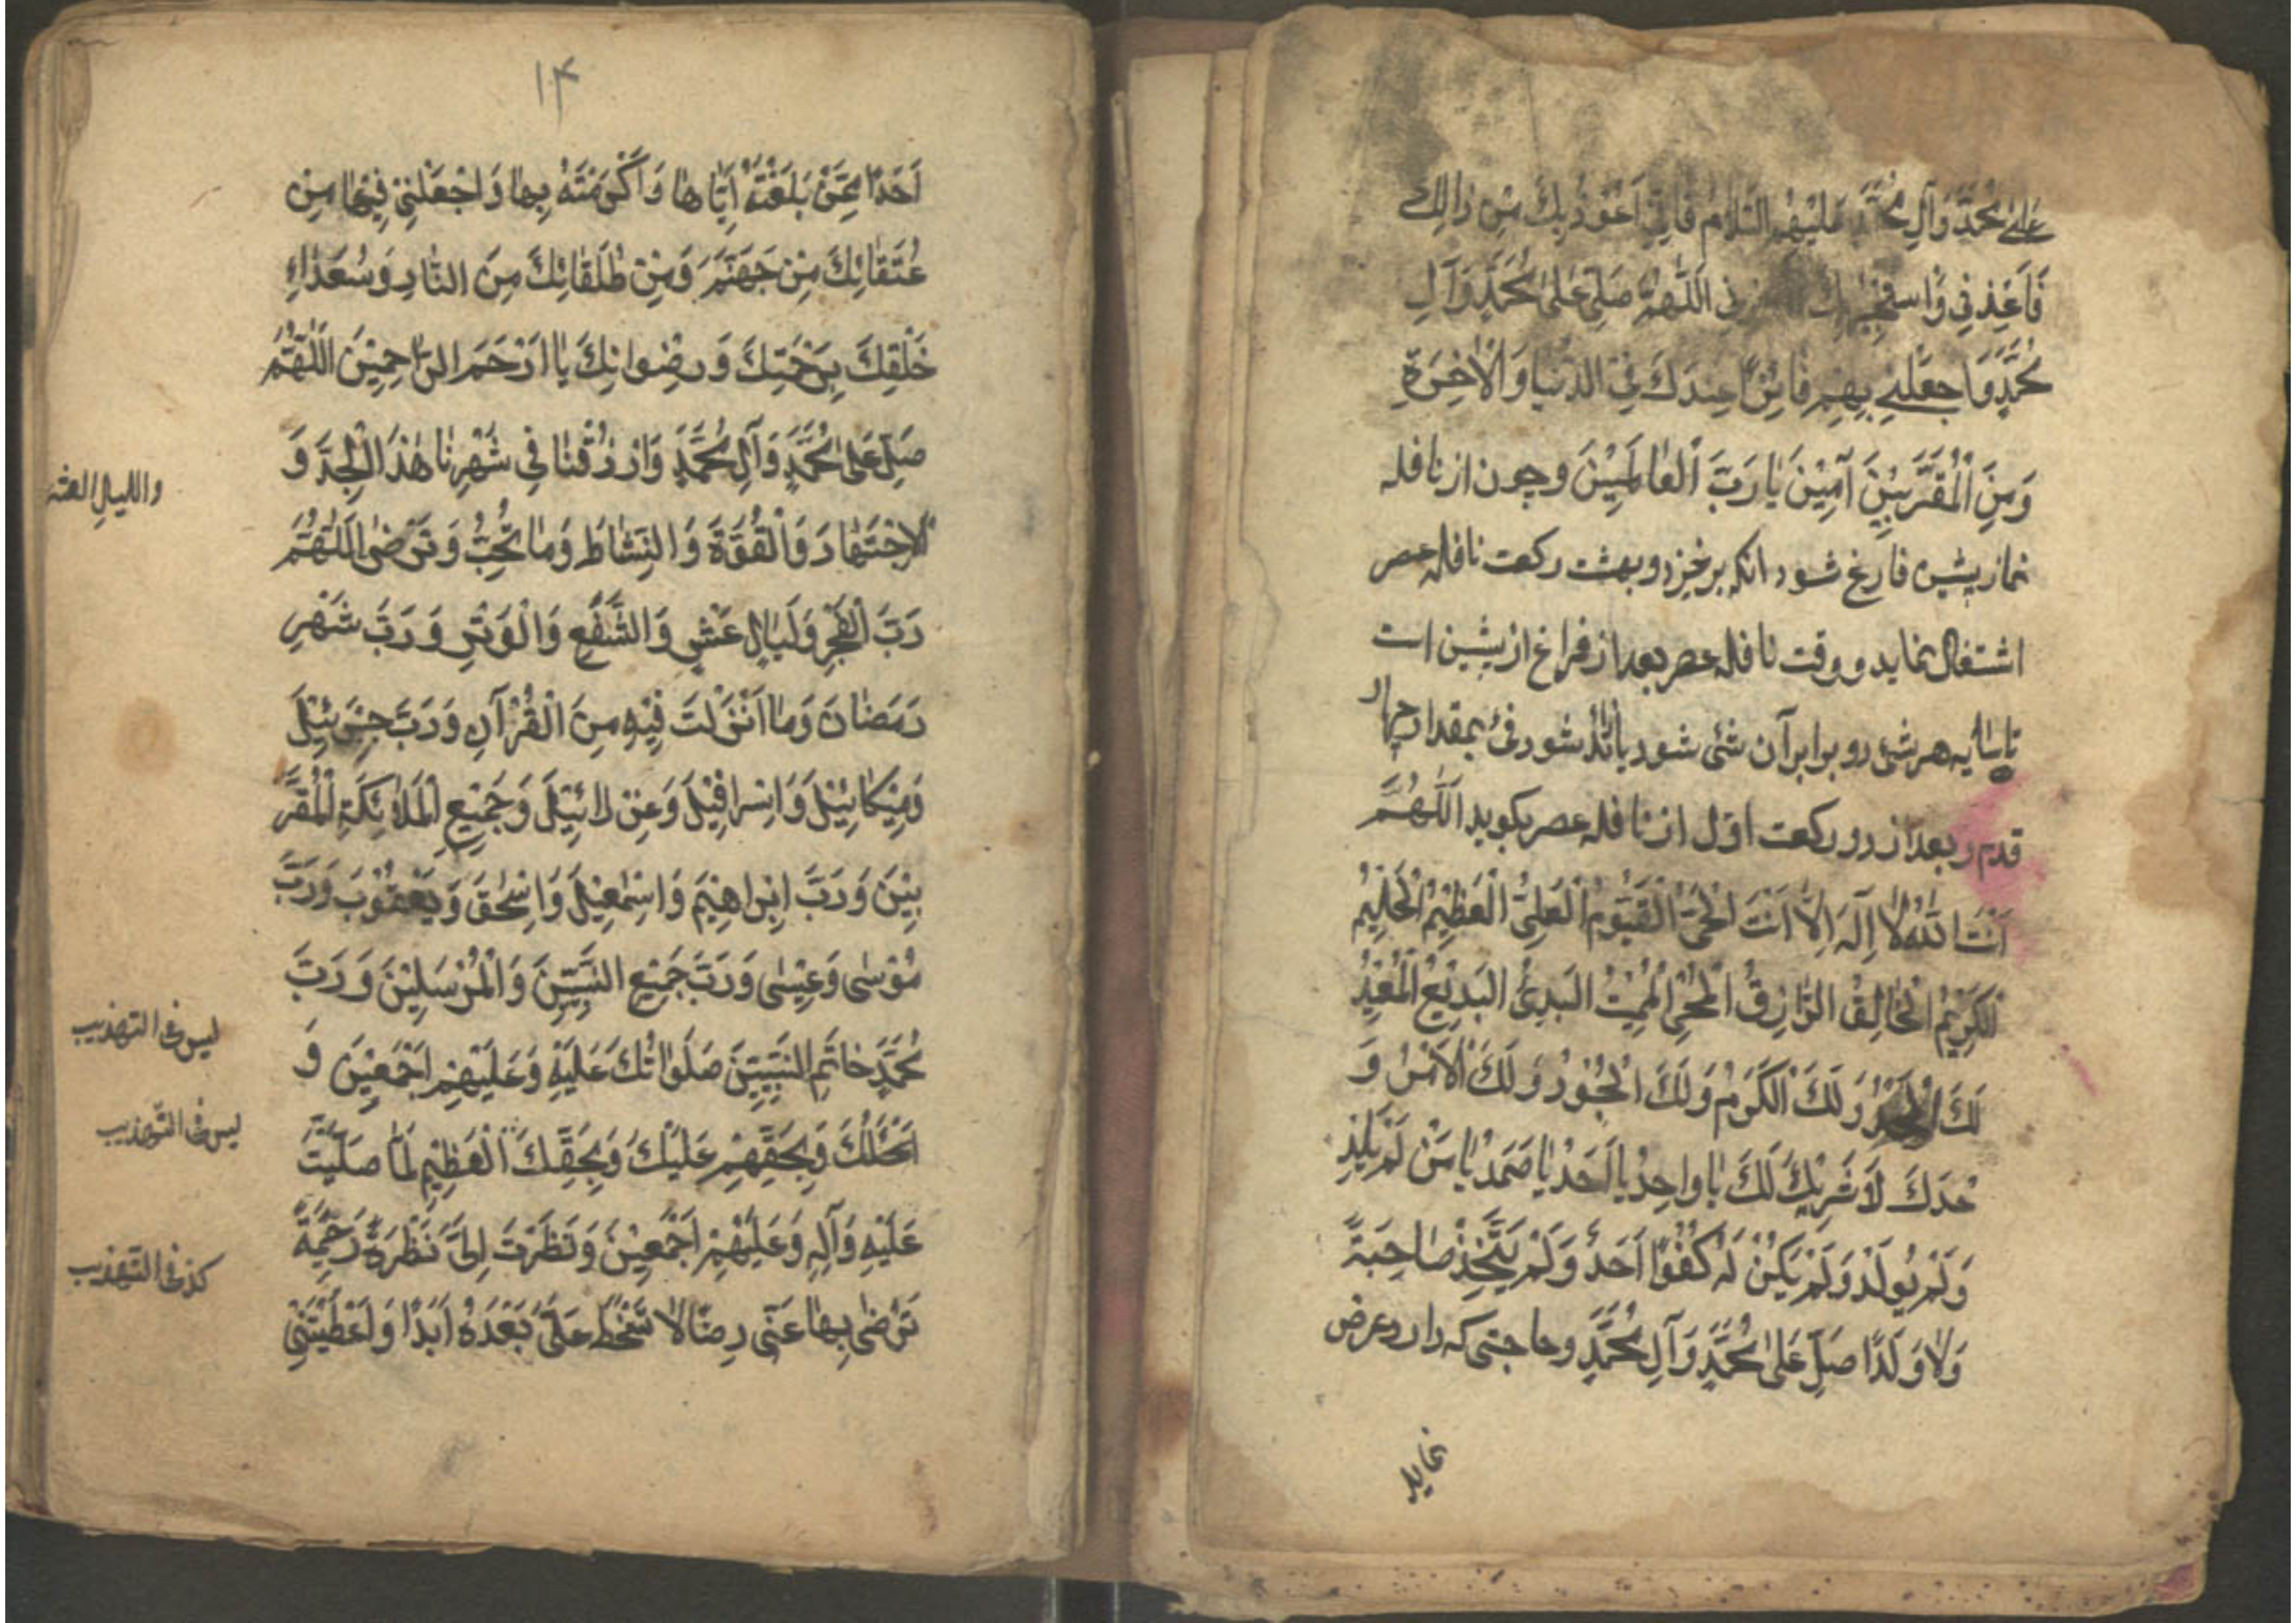 عَلىٰ مُحَمَّدٍ وَآلِ مُحَمَّدٍ عَلَيْهِمُ السَّلامُ فَاِنّي اَعُوذُ بِكَ مِنْ ذالِكَ
فَاَعِذْنِي وَاَسْتَجِيْرُ بِكَ اَللّٰهُمَّ صَلِّ عَلىٰ مُحَمَّدٍ وَآلِ
مُحَمَّدٍ وَاجْعَلْنِي بِهِمْ فَائِزًا عِنْدَكَ فِي الدُّنْيا وَالْاٰخِرَةِ
وَمِنَ الْمُقَرَّبِيْنَ آمِيْنَ يَا رَبَّ الْعَالَمِيْنَ وچون از نافله
نماز پیشین فارغ شود انکه برخیزد و بهشت رکعت نافله عصر
اشتغال نماید و وقت نافله عصر بعد از فراغ از پیشین است
تا سایه هر شئ دو برابر آن شئ شود یا شود فئ بمقدار چهار
قدم و بعد از دو رکعت اول از نافله عصر بکوید اَللّٰهُمَّ
اَنْتَ اللهُ لَا اِلٰهَ اِلَّا اَنْتَ الْحَيُّ الْقَيُّومُ الْعَلِيُّ الْعَظِيْمُ الْحَلِيْمُ
الْكَرِيْمُ الْخَالِقُ الرَّازِقُ الْمُحْيِ الْمُمِيْتُ الْبَدِئُ الْبَدِيْعُ الْمُعِيْدُ
لَكَ الْحَمْدُ وَلَكَ الْكَرَمُ وَلَكَ الْجُوْدُ وَلَكَ الْاَمْرُ وَ
حْدَكَ لَا شَرِيْكَ لَكَ يَا وَاحِدُ يَا اَحَدُ يَا صَمَدُ يَا مَنْ لَمْ يَلِدْ
وَلَمْ يُولَدْ وَلَمْ يَكُنْ لَهُ كُفُوًا اَحَدٌ وَلَمْ يَتَّخِذْ صَاحِبَةً
وَلَا وَلَدًا صَلِّ عَلىٰ مُحَمَّدٍ وَآلِ مُحَمَّدٍ وحاجتی که دارد عرض
نماید
١٤
اَحَدًا مِمَّنْ بَلَّغْتَهُ اَيَّامَهَا وَاَكْرَمْتَهُ بِهَا وَاجْعَلْنِيْ فِيْهَا مِنْ
عُتَقَائِكَ مِنْ جَهَنَّمَ وَمِنْ طُلَقَائِكَ مِنَ النَّارِ وَسُعَدَاءِ
خَلْقِكَ بِرَحْمَتِكَ وَرِضْوَانِكَ يَا اَرْحَمَ الرَّاحِمِيْنَ اَللّٰهُمَّ
صَلِّ عَلىٰ مُحَمَّدٍ وَآلِ مُحَمَّدٍ وَارْزُقْنَا فِي شَهْرِنَا هٰذَا الْجِدَّ وَ
الْاِجْتِهَادَ وَالْقُوَّةَ وَالنَّشَاطَ وَمَا تُحِبُّ وَتَرْضىٰ اَللّٰهُمَّ
رَبَّ الْفَجْرِ وَلَيَالٍ عَشْرٍ وَالشَّفْعِ وَالْوَتْرِ وَرَبَّ شَهْرِ
رَمَضَانَ وَمَا اَنْزَلْتَ فِيْهِ مِنَ الْقُرْآنِ وَرَبَّ جِبْرَئِيْلَ
وَمِيْكَائِيْلَ وَاِسْرَافِيْلَ وَعِزْرَائِيْلَ وَجَمِيْعِ الْمَلَائِكَةِ الْمُقَرَّ
بِيْنَ وَرَبَّ اِبْرَاهِيْمَ وَاِسْمٰعِيْلَ وَاِسْحٰقَ وَيَعْقُوْبَ وَرَبَّ
مُوْسٰى وَعِيْسٰى وَرَبَّ جَمِيْعِ النَّبِيِّيْنَ وَالْمُرْسَلِيْنَ وَرَبَّ
مُحَمَّدٍ خَاتَمِ النَّبِيِّيْنَ صَلَوَاتُكَ عَلَيْهِ وَعَلَيْهِمْ اَجْمَعِيْنَ وَ
اَسْئَلُكَ وَبِحَقِّهِمْ عَلَيْكَ وَبِحَقِّكَ الْعَظِيْمِ لَمَّا صَلَّيْتَ
عَلَيْهِ وَآلِهِ وَعَلَيْهِمْ اَجْمَعِيْنَ وَنَظَرْتَ اِلَيَّ نَظْرَةً رَحِيْمَةً
تَرْضىٰ بِهَا عَنّى رِضًا لَا تَسْخَطُ عَلَيَّ بَعْدَهُ اَبَدًا وَاَعْطَيْتَنِيْ
واللیالِ العشر
لیس فی التهذیب
لیس فی التهذیب
کذا فی التهذیب